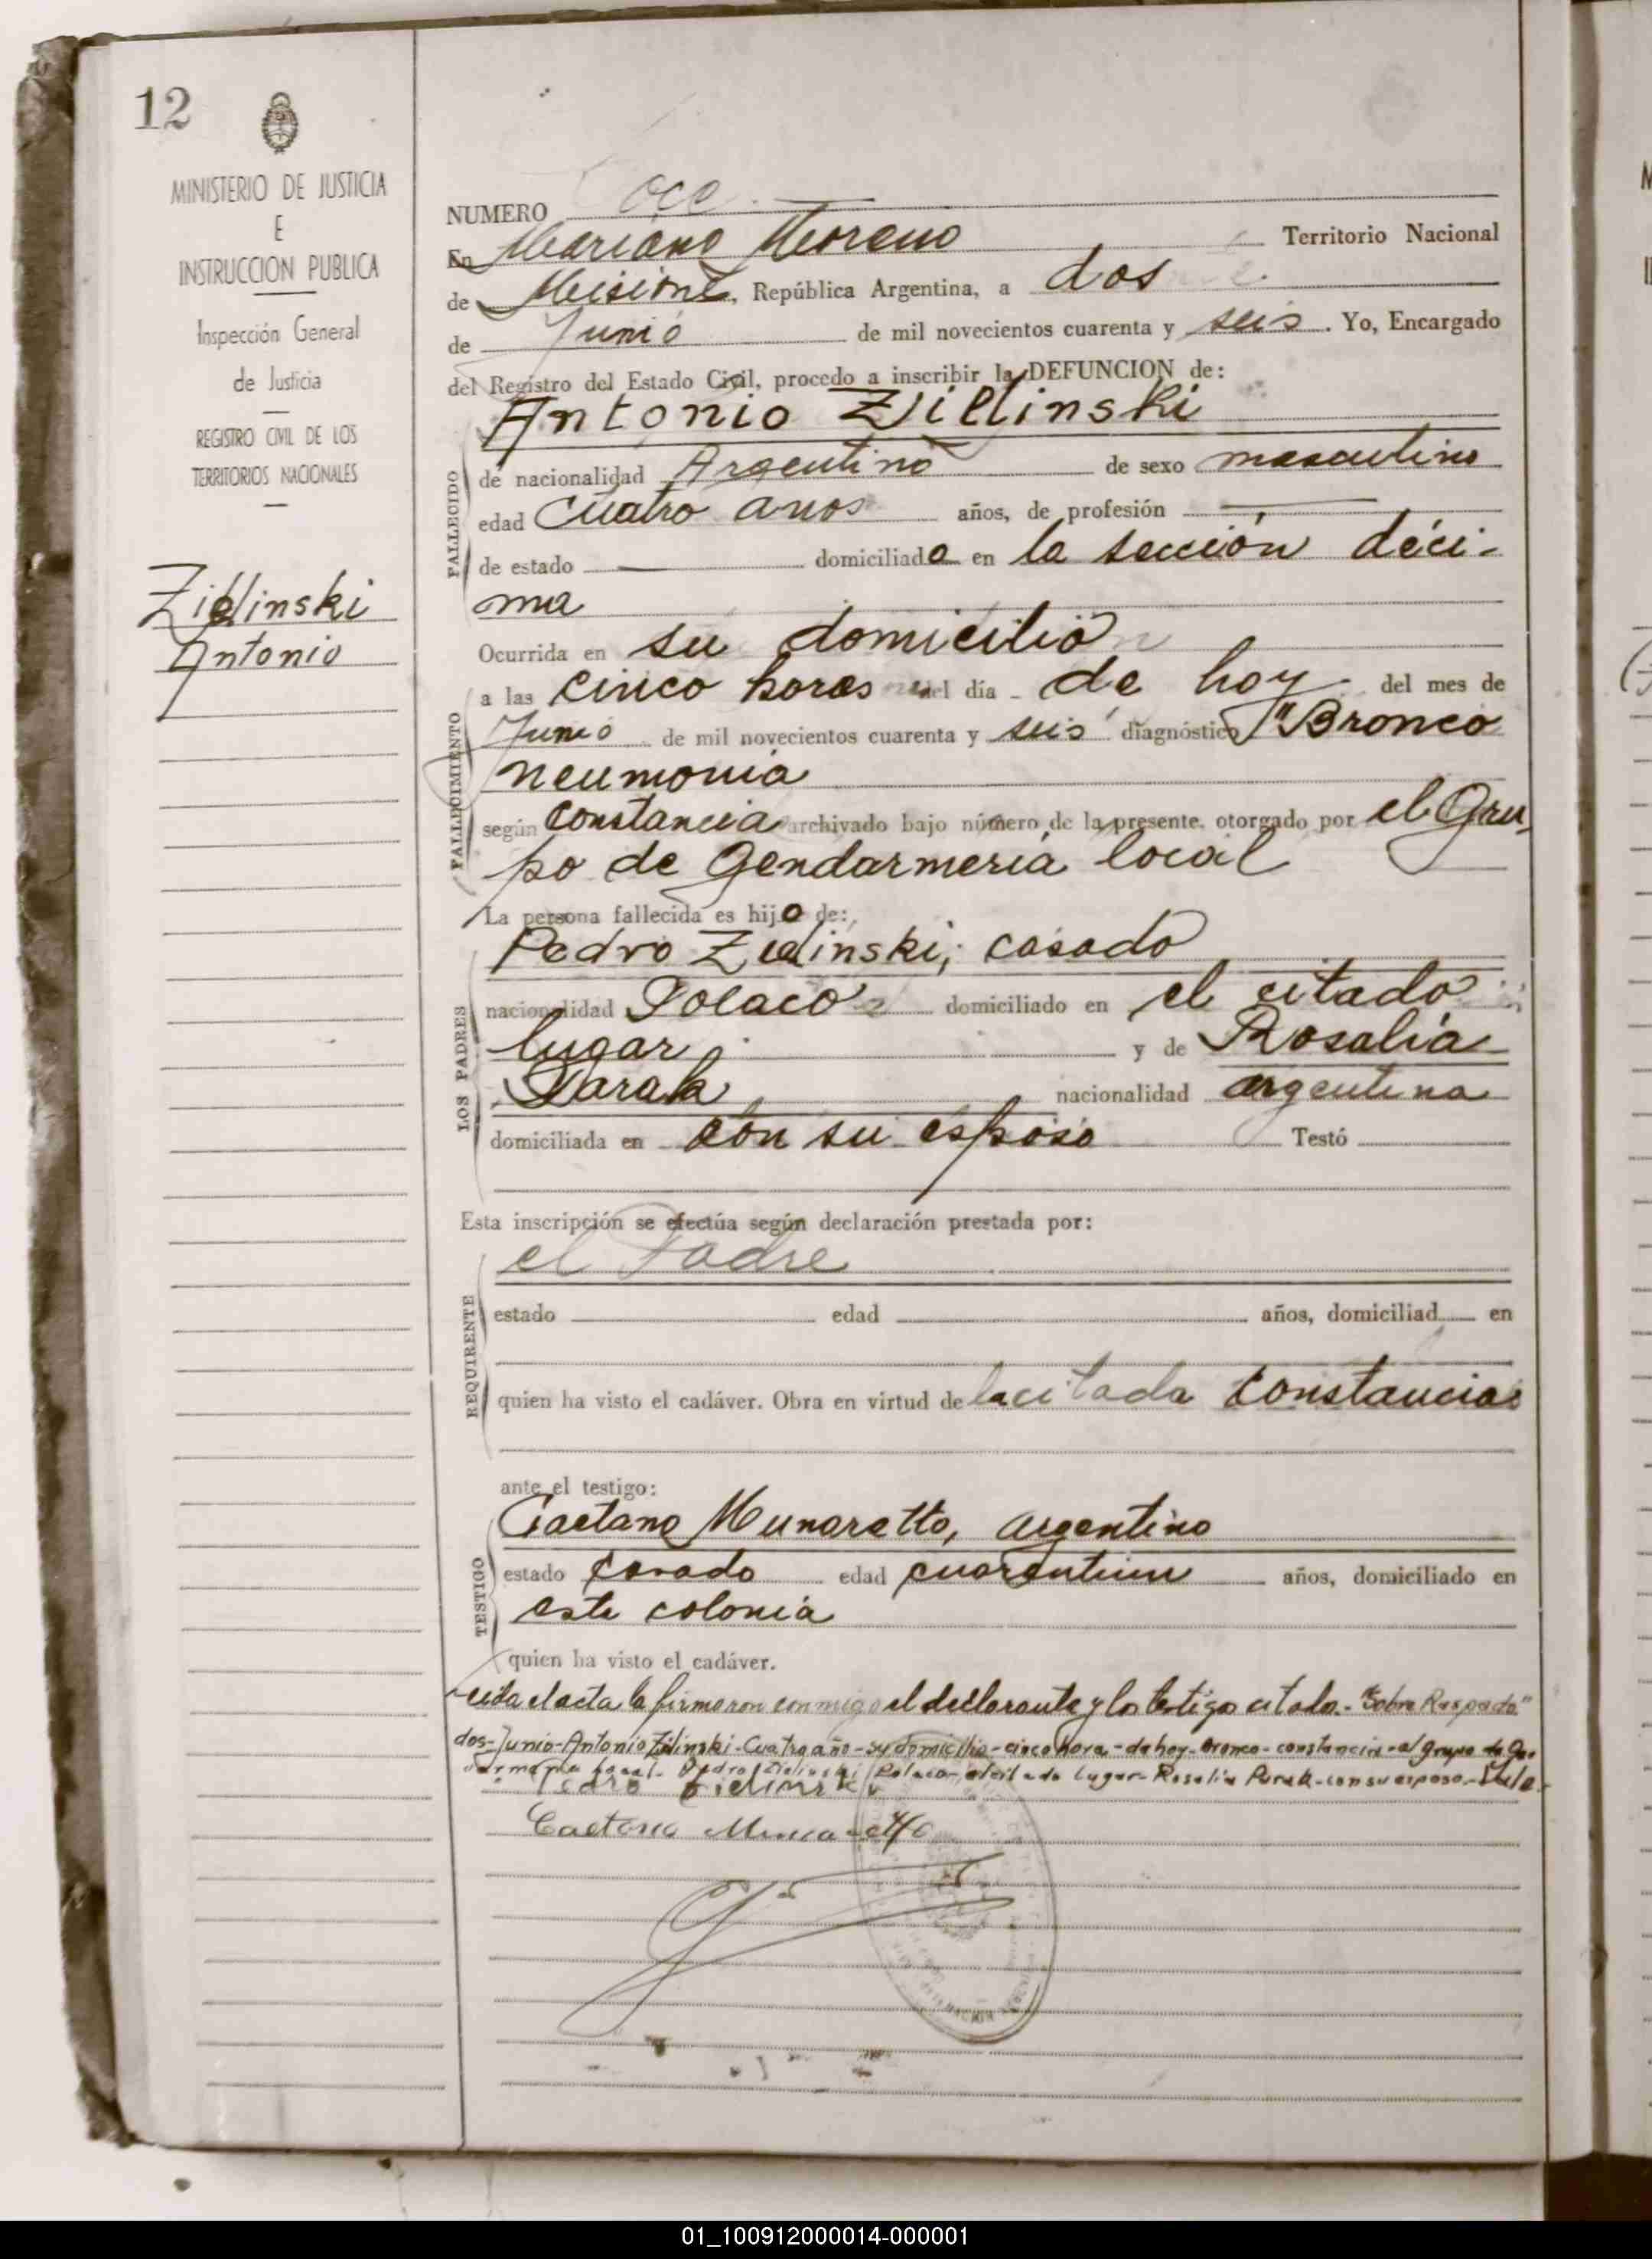 12
MINISTERIO DE JUSTICIA
E
INSTRUCCION PUBLICA
Inspección General
de Justicia
REGISTRO CIVIL DE LOS
TERRITORIOS NACIONALES
Zielinski
Antonio
NUMERO
En Mariano Moreno Territorio Nacional
de Misiones, República Argentina, a dos
de Junio de mil novecientos cuarenta y seis. Yo, Encargado
del Registro del Estado Civil, procedo a inscribir la DEFUNCION de:
Antonio Zielinski
FALLECIDO
de nacionalidad Argentino de sexo masculino
edad Cuatro anos años, de profesión
de estado domiciliado en la sección déci-
ma
Ocurrida en su domicilio
FALLECIMIENTO
a las cinco horas del día de hoy del mes de
Junio de mil novecientos cuarenta y seis diagnóstico "Bronco
neumonia
según constancia archivado bajo número de la presente, otorgado por el Gru-
po de Gendarmería local
La persona fallecida es hijo de:
LOS PADRES
Pedro Zielinski, casado
nacionalidad Polaco domiciliado en el citado
lugar y de Rosalía
nacionalidad argentina
domiciliada en con su esposo Testó
Esta inscripción se efectúa según declaración prestada por:
REQUIRENTE
el Padre
estado edad años, domiciliad en
quien ha visto el cadáver. Obra en virtud de la citada constancia
ante el testigo:
TESTIGO
Caetano Munaretto, argentino
estado casado edad años, domiciliado en
esta colonia
quien ha visto el cadáver.
el acta la firmaron conmigo el declarante y los testigo citado.- "Sobre Raspado"
dos-Junio-Antonio Zielinski-Cuatro año-su domicilio-cinco hora-de hoy-Bronco-constancia-el grupo de Gen
local- Pedro Zielinski Polaco- el citado lugar- Rosalía con su esposo.-Vale.-
Pedro Zielinski
Caetano Munaretto
01_100912000014-000001